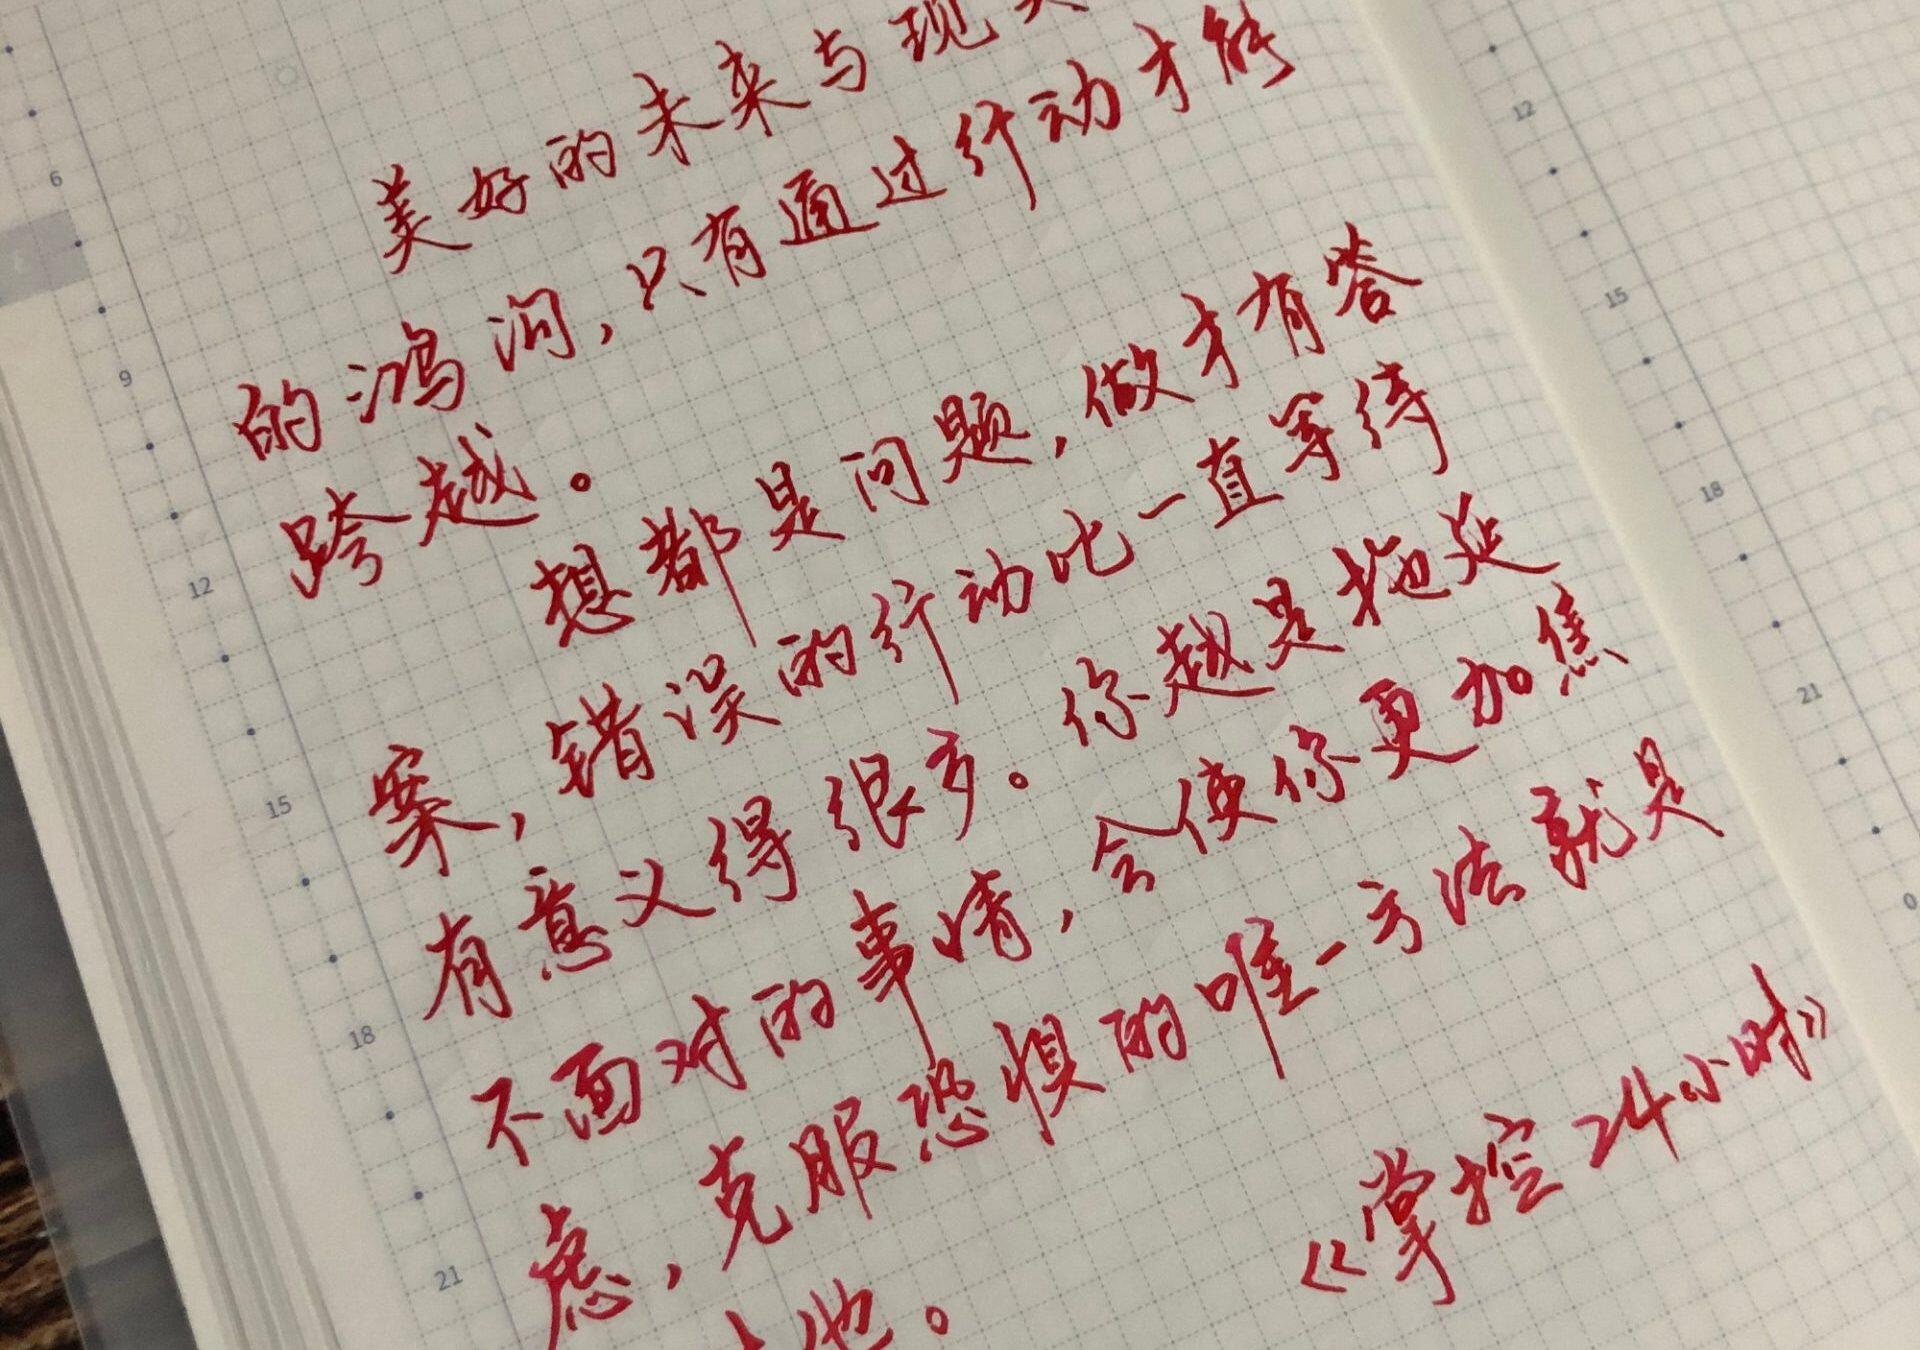 美好的未来与现
的鸿沟,只有通过行动才能
跨越。
想都是问题,做才有答
案,错误的行动比一直等待
有意义得很多。你越是拖延
不面对的事情,会使你更加焦
虑,克服恐惧的唯一方法就是
。
《掌控24小时》
6
9
12
15
18
21
12
15
18
21
0